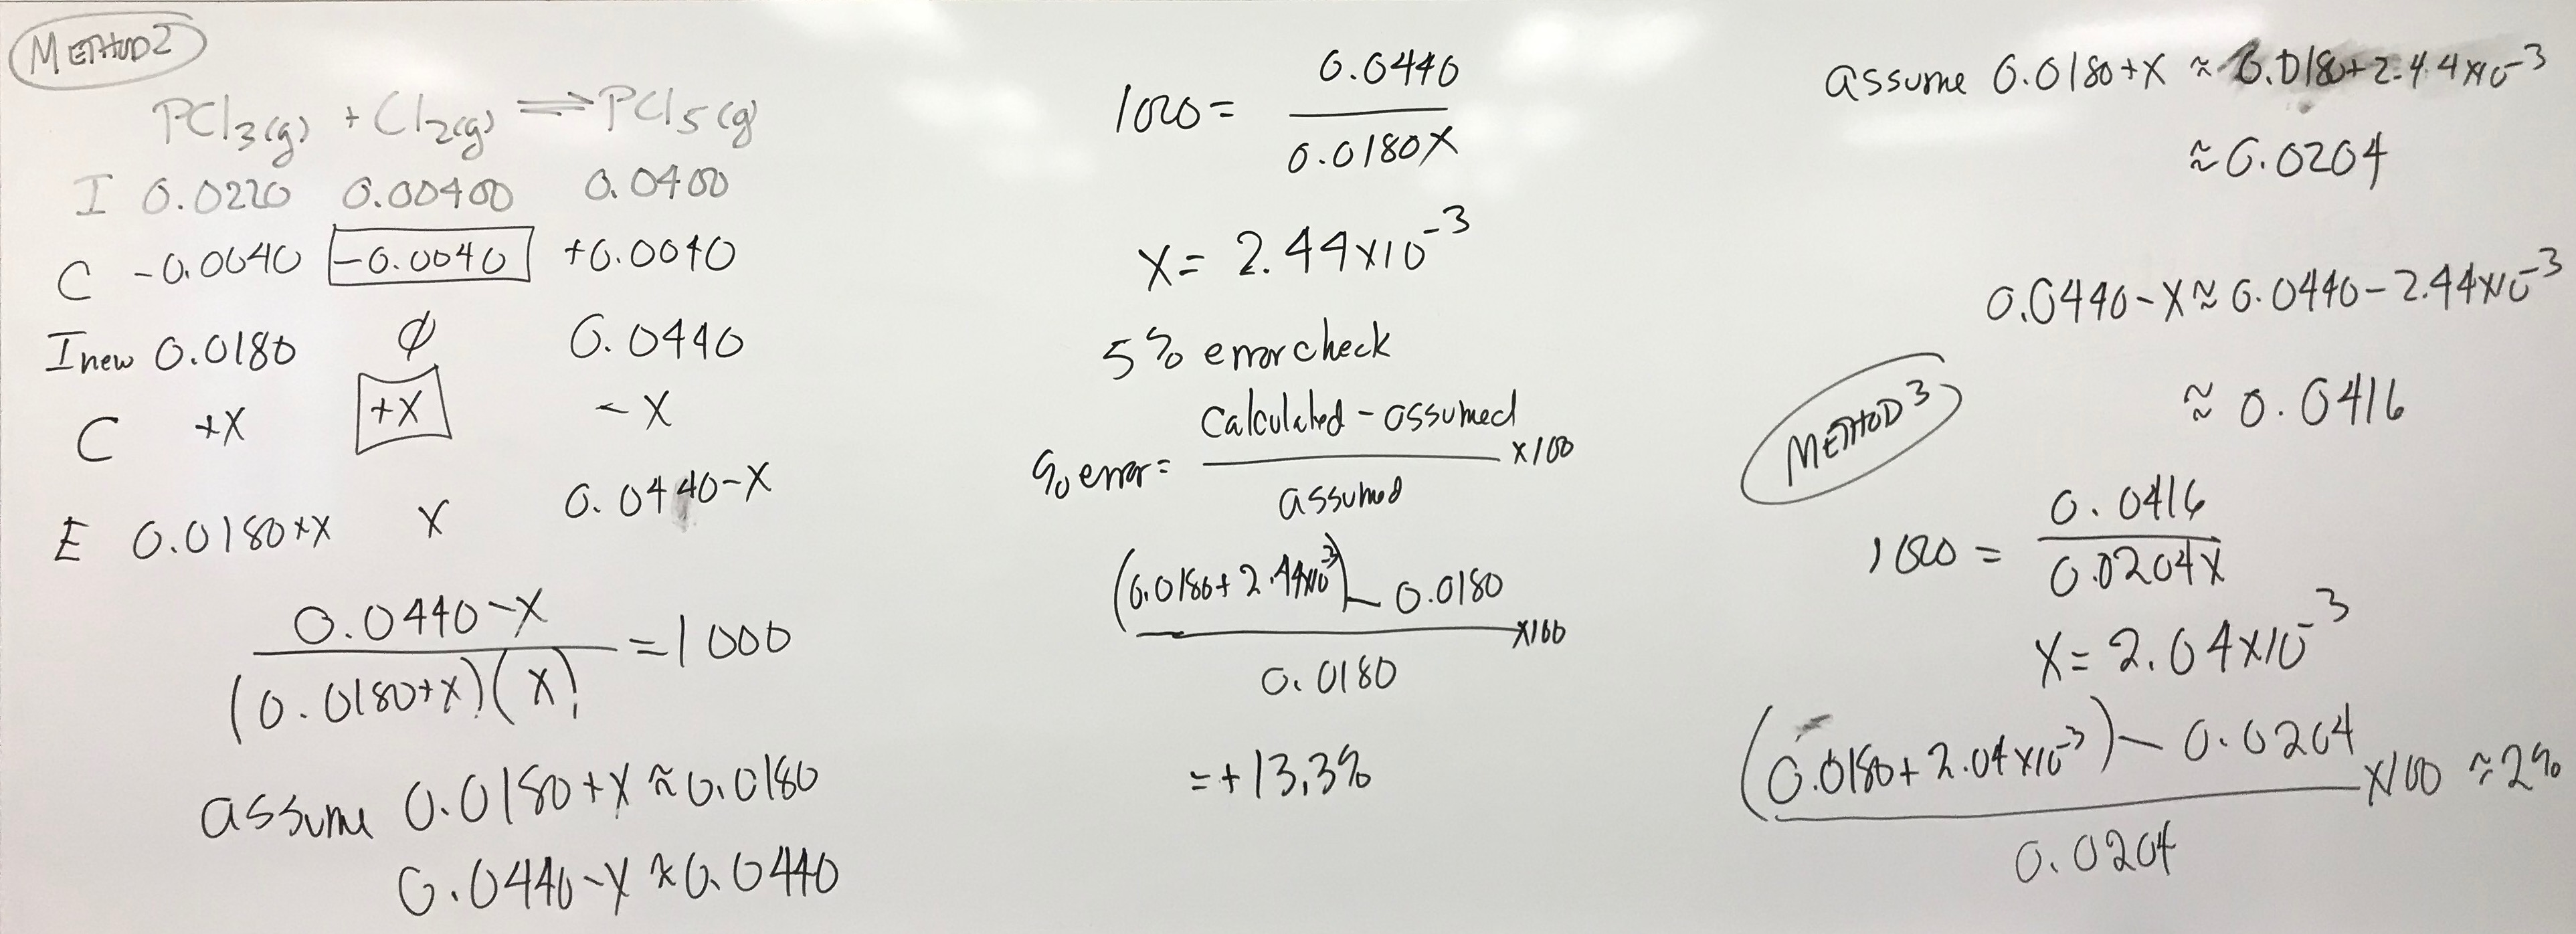 METHOD 2
PCl3(g) + Cl2(g) ⇌ PCl5(g)
I 0.0220 0.00400 0.0400
C -0.0040 -0.0040 +0.0040
Inew 0.0180 ∅ 0.0440
C +X +X - X
E 0.0180+X X 0.0440-X
0.0440-X
(0.0180+X)(X)
=1000
assume 0.0180+X ≈ 0.0180
0.0440-X ≈ 0.0440
1000 =
0.0440
0.0180X
X = 2.44×10-3
5% error check
% error =
Calculated - assumed
assumed
×100
(0.0180+2.44×10-3) - 0.0180
0.0180
×100
= +13.3%
assume 0.0180+X ≈ 0.0180+2.44×10-3
≈ 0.0204
0.0440-X ≈ 0.0440-2.44×10-3
≈ 0.0416
METHOD 3
1000 =
0.0416
0.0204X
X = 2.04×10-3
(0.0180+2.04×10-3) - 0.0204
0.0204
×100 ≈ 2%